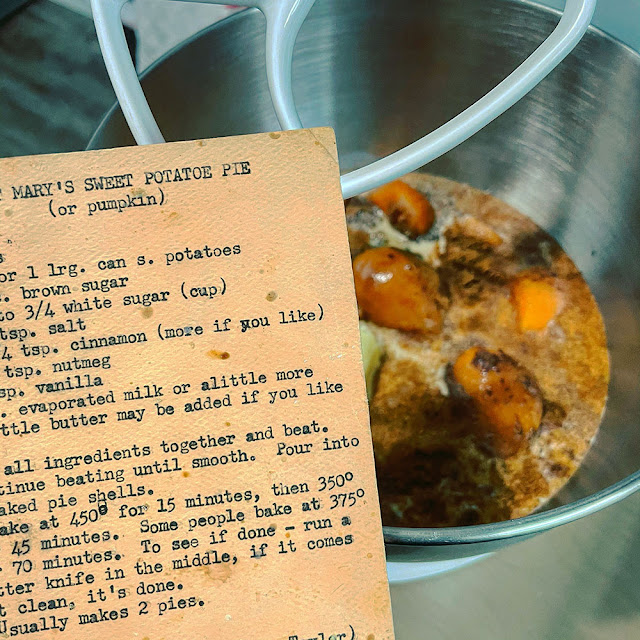 MARY'S SWEET POTATOE PIE
(or pumpkin)
or 1 lrg. can s. potatoes
. brown sugar
to 3/4 white sugar (cup)
tsp. salt
4 tsp. cinnamon (more if you like)
tsp. nutmeg
sp. vanilla
. evaporated milk or alittle more
ttle butter may be added if you like
all ingredients together and beat.
tinue beating until smooth. Pour into
aked pie shells.
ake at 450° for 15 minutes, then 350°
45 minutes. Some people bake at 375°
70 minutes. To see if done - run a
tter knife in the middle, if it comes
t clean, it's done.
Usually makes 2 pies.
Taylor)